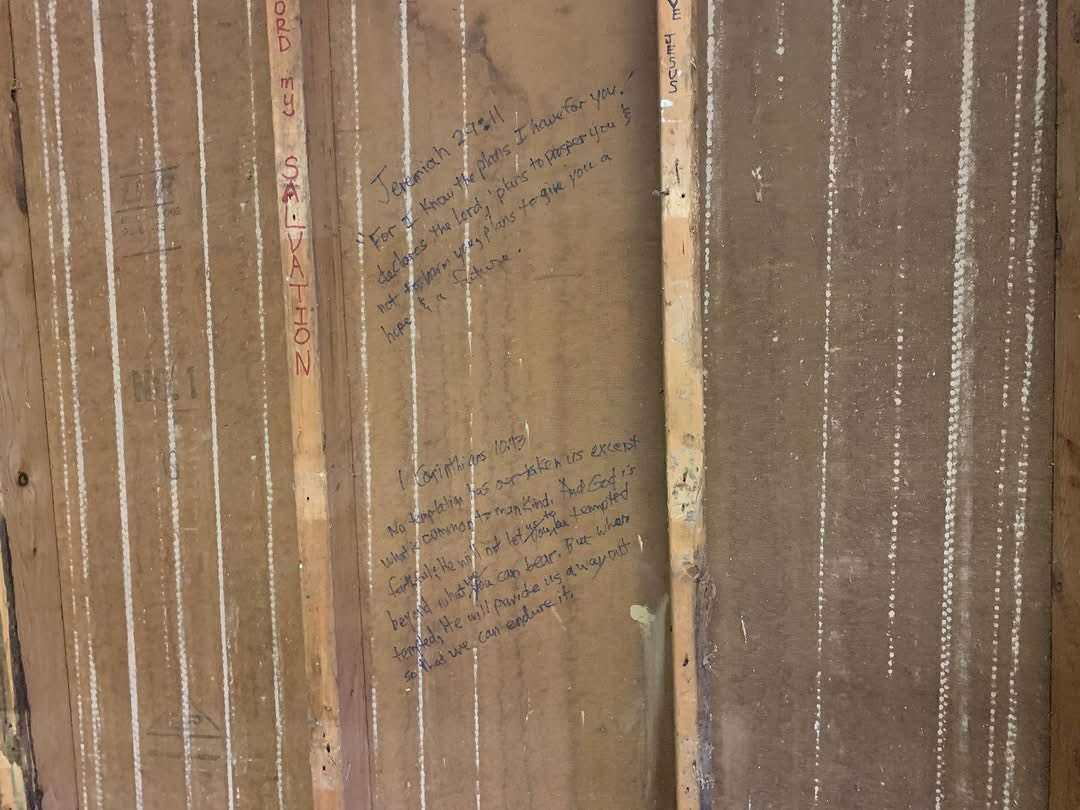 ORD MY SALVATION
VE JESUS
Jeremiah 29:11
"For I know the plans I have for you."
declares the Lord, "plans to prosper you &
not to harm you, plans to give you a
hope & a future.
1 Corinthians 10:13
No temptation has overtaken us except
what is common to mankind. And God is
faithful; He will not let us to be tempted
beyond what you can bear. But when
tempted, He will provide us a way out
so that we can endure it.
NO. 1